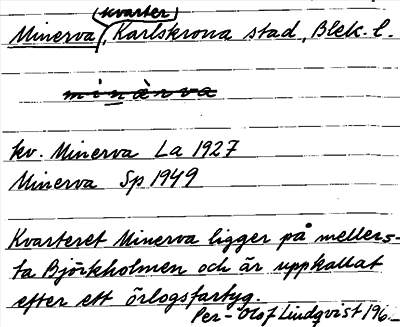 kvarter
Minerva, Karlskrona stad, Blek. l.
minärva
kv. Minerva La 1927
Minerva Sp 1949
Kvarteret Minerva ligger på mellers-
ta Björkholmen och är uppkallat
efter ett örlogsfartyg.
Per-Olof Lindqvist 196.-